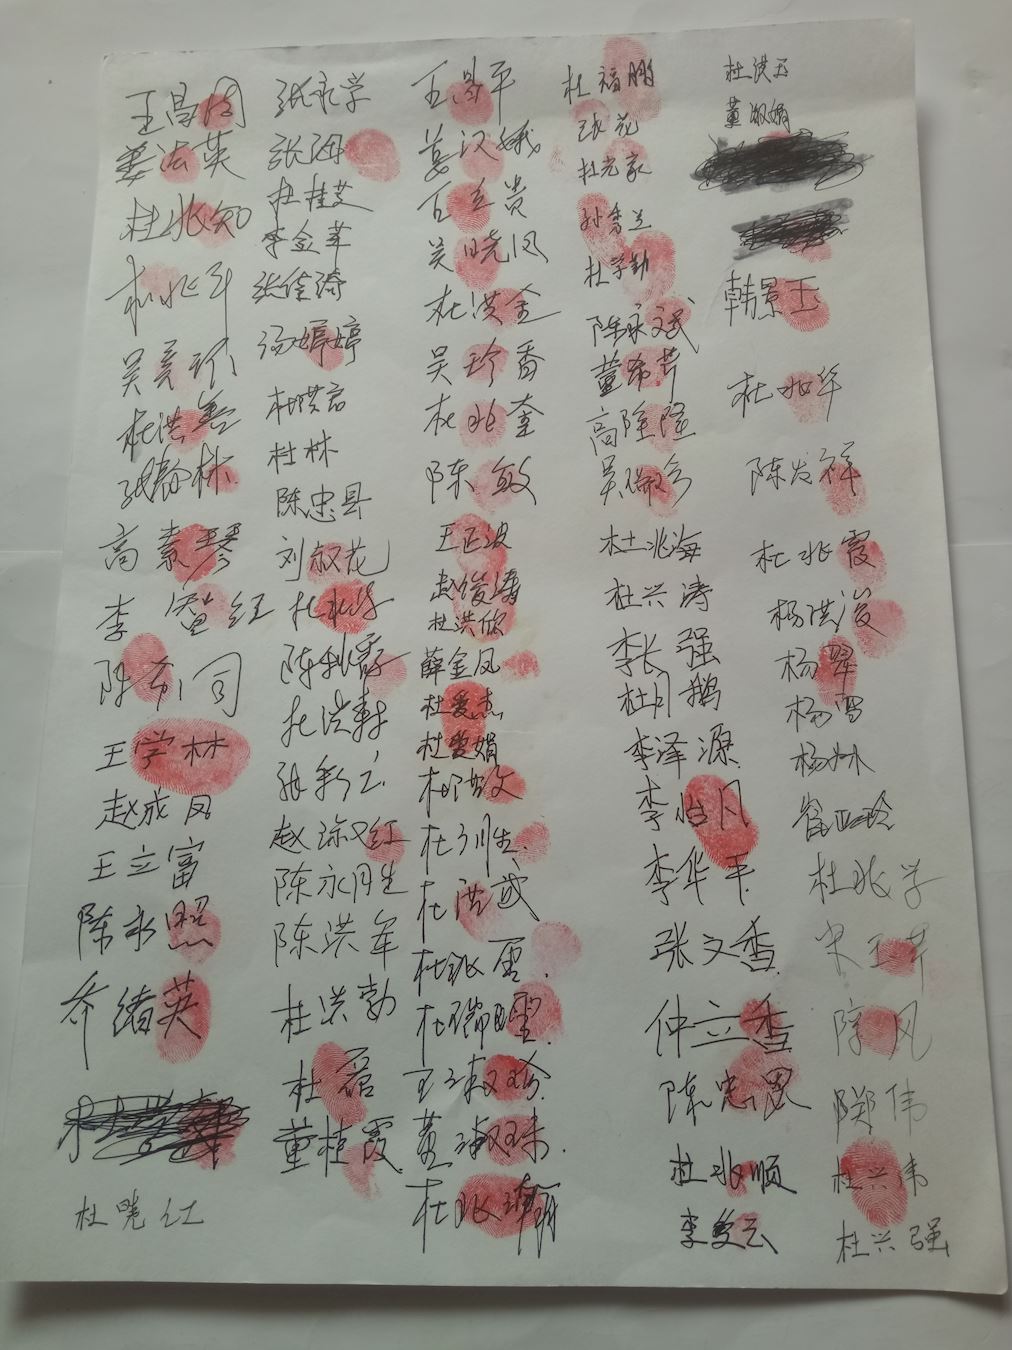 王昌同
姜法英
杜兆知
杜兆军
吴美珍
杜洪善
张静林
高素琴
李爱红
王学林
赵成凤
王立富
陈永照
乔绪英
杜晓红
张永学
张海
杜桂芝
李金苹
张佳琦
汤婷婷
杜洪君
杜林
陈忠县
刘淑花
陈秋霞
杜洪村
赵淑红
陈永胜
陈洪军
杜洪勃
杜蓓
董桂霞
王昌平
姜汉娥
吴晓凤
杜洪全
吴珍香
杜兆奎
陈敏
王正波
赵俊涛
杜洪欣
薛金凤
杜爱杰
杜爱娟
杜洪文
杜洪武
杜瑞雪
王淑珍
董淑珠
杜福鹏
张花
杜光家
孙秀兰
杜学勤
陈永斌
董希芹
高隆隆
杜兆海
杜兴涛
李长强
杜月鹅
李泽源
李怡凡
李华平
张文香
仲立香
陈忠恩
杜兆顺
李爱云
杜洪玉
董淑娟
韩景玉
杜兆华
陈发祥
杜兆霞
杨洪波
杨翠
杨雪
杨林
崔亚玲
杜兆学
宋玉芹
陈凤
陈伟
杜兴伟
杜兴强